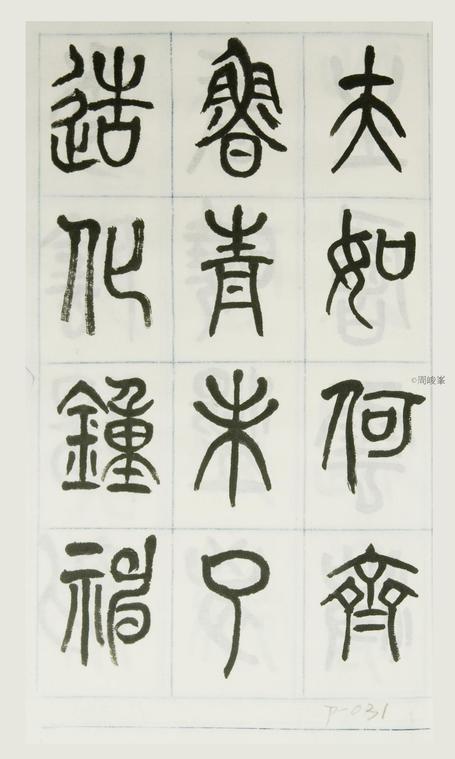 夫如何齊
魯青未了
造化鍾神
©周峻峯
P-031